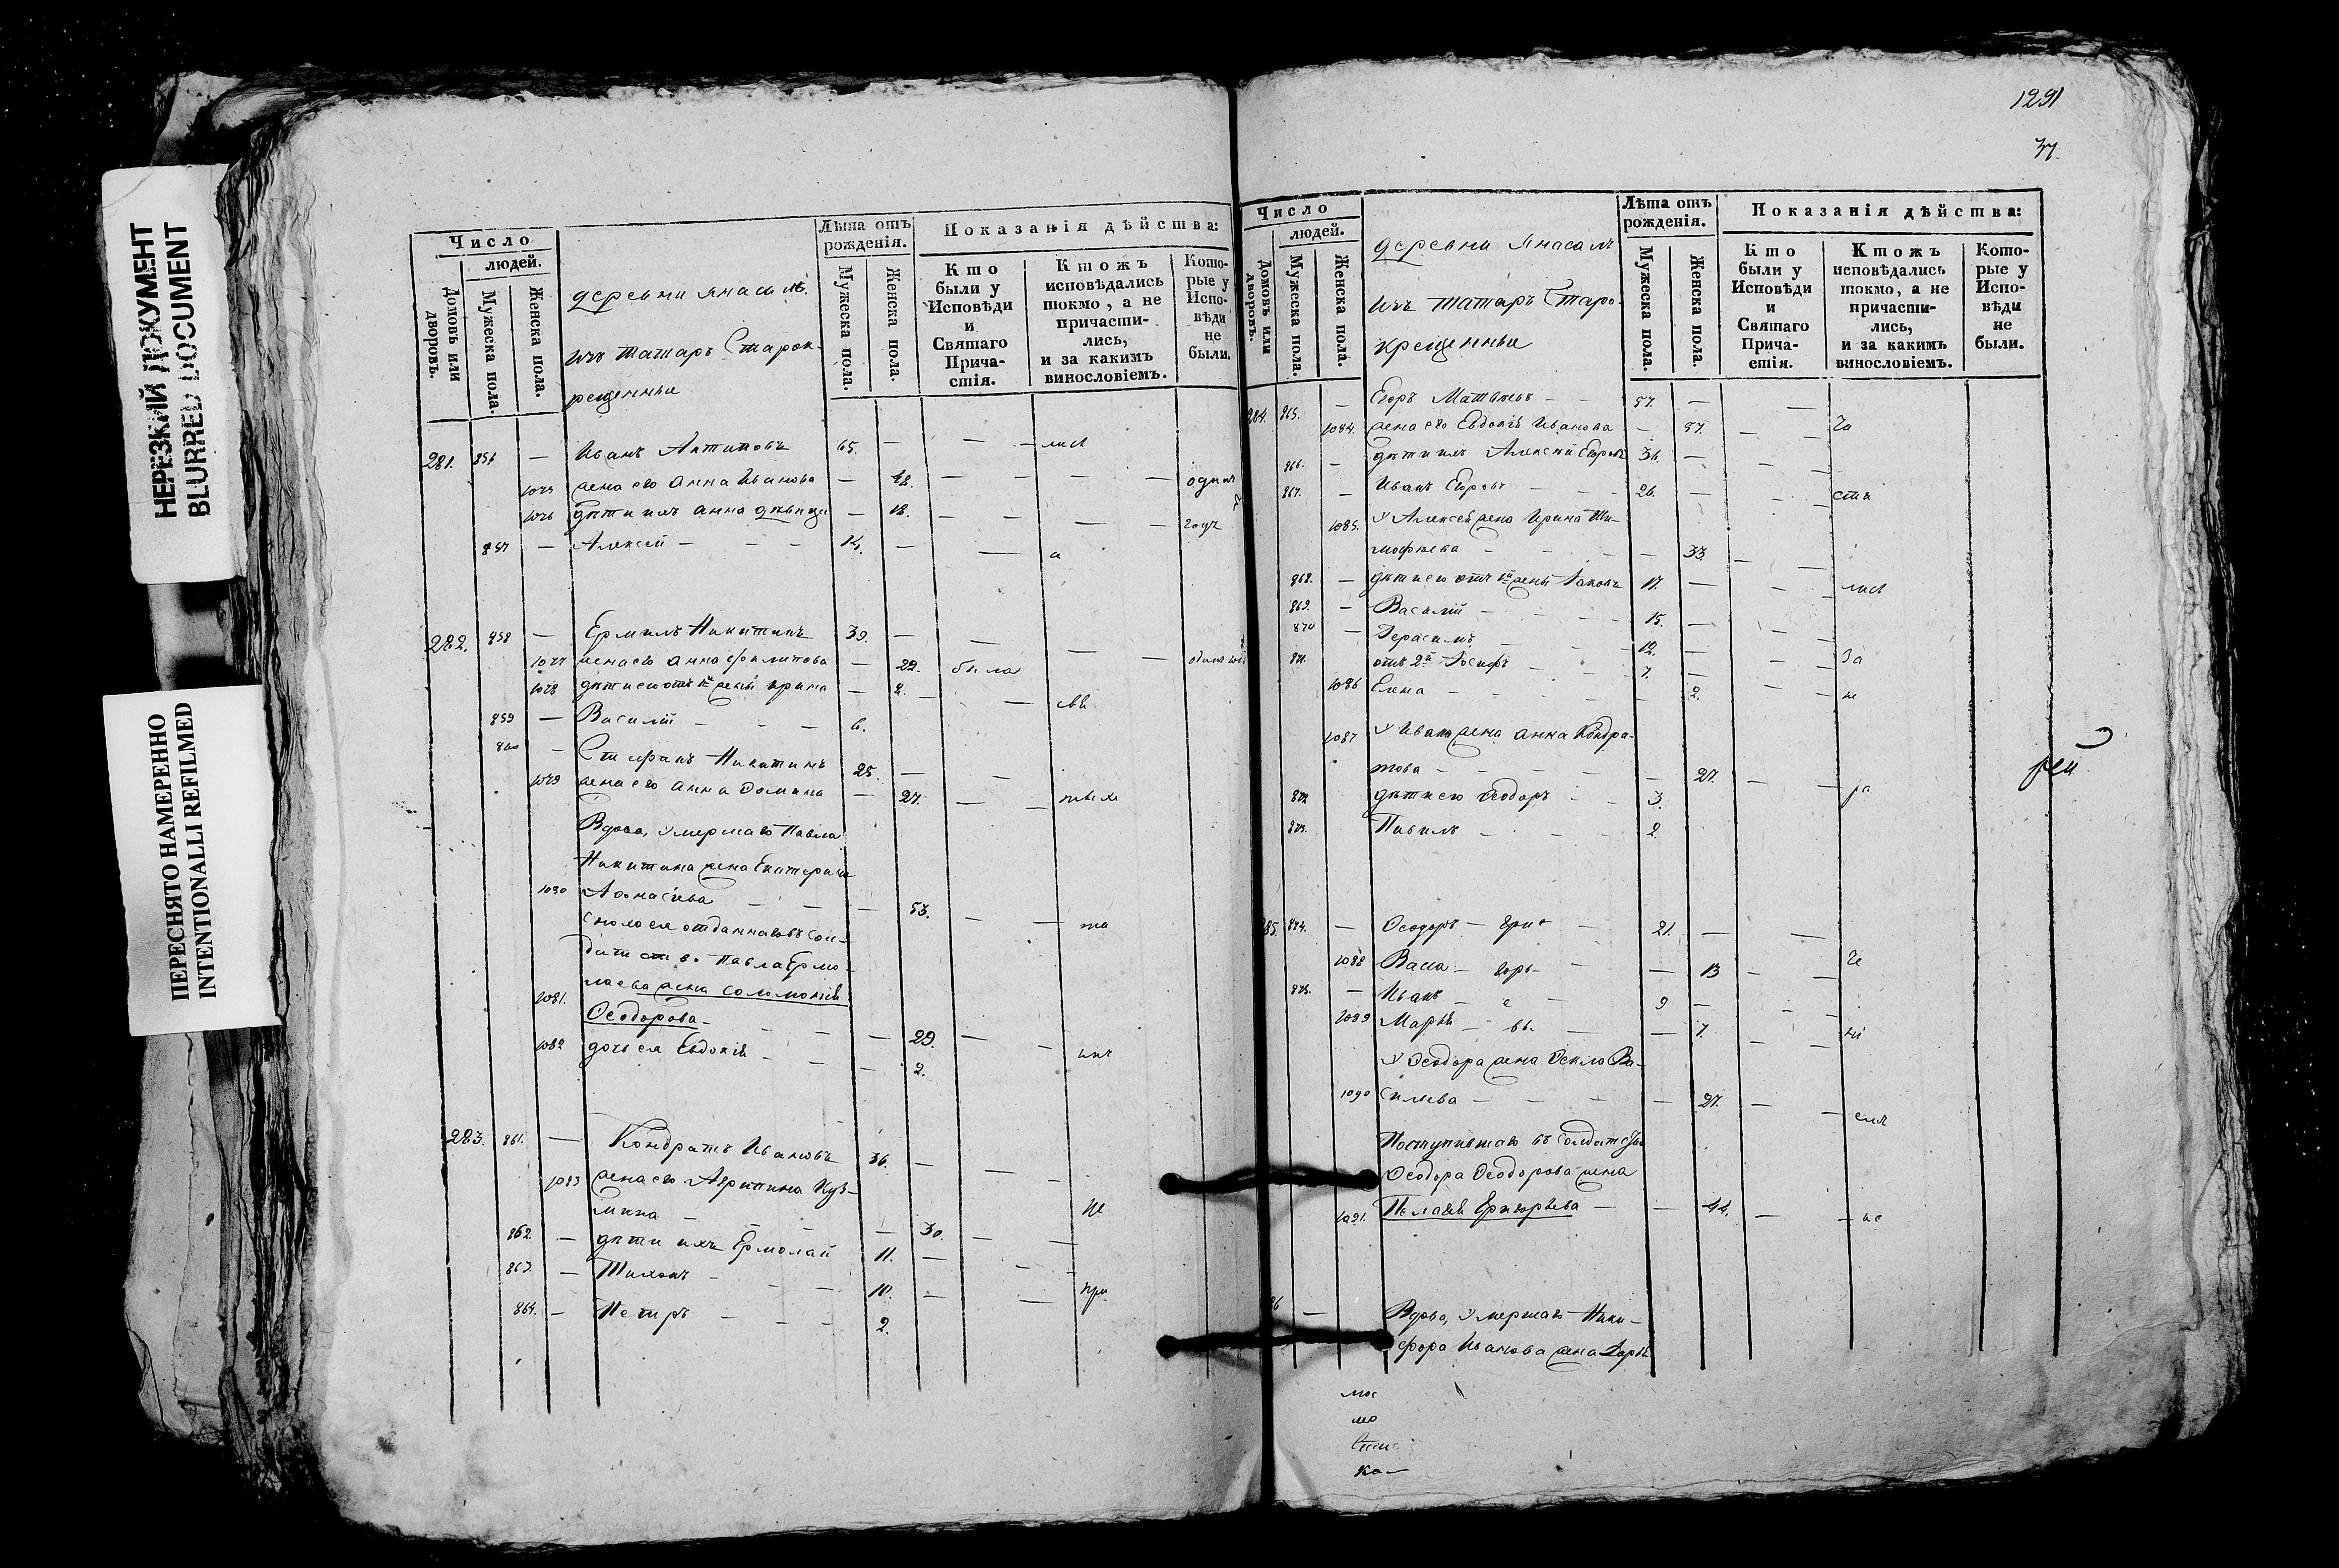 НЕРЕЗКИЙ ДОКУМЕНТ
BLURRED DOCUMENT
ПЕРЕСНЯТО НАМЕРЕННО
INTENTIONALLI REFILMED
Число
людей.
Домовъ или дворовъ.
Мужеска пола.
Женска пола.
деревни Янасалъ.
изъ татаръ Старок-
рещенныи
Лѣта отъ рождения.
Мужеска пола.
Женска пола.
Показанія дѣйства:
Кто были у Исповѣди и Святаго Причастія.
Ктожъ исповѣдались токмо, а не причасти-лись, и за какимъ винословіемъ.
Кото-рые у Испо-вѣди не были.
281. 856 — Иванъ Антиповъ 65. — — —
1075 жена его Анна Иванова — 48. — — — —
1076 дѣти ихъ Анна дѣвица — 18. — — — —
857 — Алексей — — — 14. — — а
282. 858 — Ермилъ Никитинъ 39. — — —
1077 жена его Анна Филипова — 22. была —
1078 дѣти его отъ 1й жены Ирина — 8. — —
859 — Василій — — — 6.
860 — Стефанъ Никитинъ 25. — —
1079 жена его Анна Фомина — 27. — —
Вдова, умершаго Павла
Никитина жена Екатерина
1080 Афонасьева — — — 53. — — та
сноха ея отданнаго въ сол-
датство Павла Ермо-
лаева жена Соломонія
1081. Ѳеодорова — — — — 29. — —
1082 дочь ея Евдокія — — — 2.
283. 861. — Кондратъ Ивановъ 36. — — —
1083 жена его Агрипина Куз-
мина — — — — 30. — — не
862. — дѣти ихъ Ермолай 11. — — —
863. — Тихонъ — — — 10. — — при
864. — Петръ — — — 2.
1291
37.
Число
людей.
Домовъ или дворовъ.
Мужеска пола.
Женска пола.
деревни Янасалъ
изъ татаръ Старо-
крещенныи
Лѣта отъ рождения.
Мужеска пола.
Женска пола.
Показанія дѣйства:
Кто были у Исповѣди и Святаго Прича-стія.
Ктожъ исповѣдались токмо, а не причасти-лись, и за какимъ винословіемъ.
Кото-рые у Испо-вѣди не были.
284. 865. — Егоръ Матвѣевъ — — 57. — —
1084. жена его Евдокія Иванова — 57. — —
866. — дѣти ихъ Алексей Егоровъ 36. — — —
867. — Иванъ Егоровъ — — — 26. — — —
1085. у Алексея жена Ирина Ти-
мофеева — — — — 33. — —
868. — дѣти его отъ 1й жены Іаковъ 17. — — —
869. — Василій — — — 15. — — —
870 — Герасимъ — — — 12. — — — За
871. отъ 2й Іосифъ — — — 7. — — —
1086 Елена — — — — 2. — — не
1087 у Ивана жена Анна Кондра-
това — — — — 27. — —
872 дѣти его Ѳеодоръ — — 3.
873. Павелъ — — — 2.
285. 874. — Ѳеодоръ — Гри — 21. — —
1088 Васса — горь — — 13 — —
875. — Иванъ — е — 9 — — —
1089 Марья — въ — — 7. — —
у Ѳеодора жена Ѳекла Ва-
1090 сильева — — — — 27. — —
Поступившаго въ солдатство
Ѳеодора Ѳеодорова жена
1091. Пелагея Григорьева — — 44. — — не
86 — Вдова, умершаго Ники-
фора Иванова жена Дарья